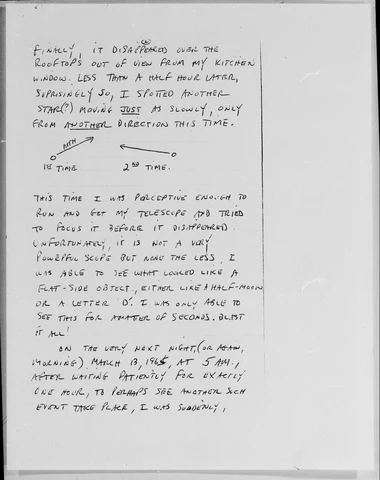 FINALLY, IT DISAPPEARED OVER THE
ROOFTOPS OUT OF VIEW FROM MY KITCHEN
WINDOW. LESS THAN A HALF HOUR LATER,
SUPRISINGLY SO, I SPOTTED ANOTHER
STAR(?) MOVING JUST AS SLOWLY, ONLY
FROM ANOTHER DIRECTION THIS TIME.
1ST TIME 2ND TIME.
THIS TIME I WAS PERCEPTIVE ENOUGH TO
RUN AND GET MY TELESCOPE AND TRIED
TO FOCUS IT BEFORE IT DISAPPEARED.
UNFORTUNATELY, IT IS NOT A VERY
POWERFUL SCOPE BUT NONE THE LESS, I
WAS ABLE TO SEE WHAT LOOKED LIKE A
FLAT-SIDE OBJECT, EITHER LIKE A HALF-MOON
OR A LETTER 'D'. I WAS ONLY ABLE TO
SEE THIS FOR A MATTER OF SECONDS. BLAST
IT ALL!
ON THE VERY NEXT NIGHT, (OR AGAIN,
MORNING) MARCH 13, 1965, AT 5 AM.,
AFTER WAITING PATIENTLY FOR EXACTLY
ONE HOUR, TO PERHAPS SEE ANOTHER SUCH
EVENT TAKE PLACE, I WAS SUDDENLY,